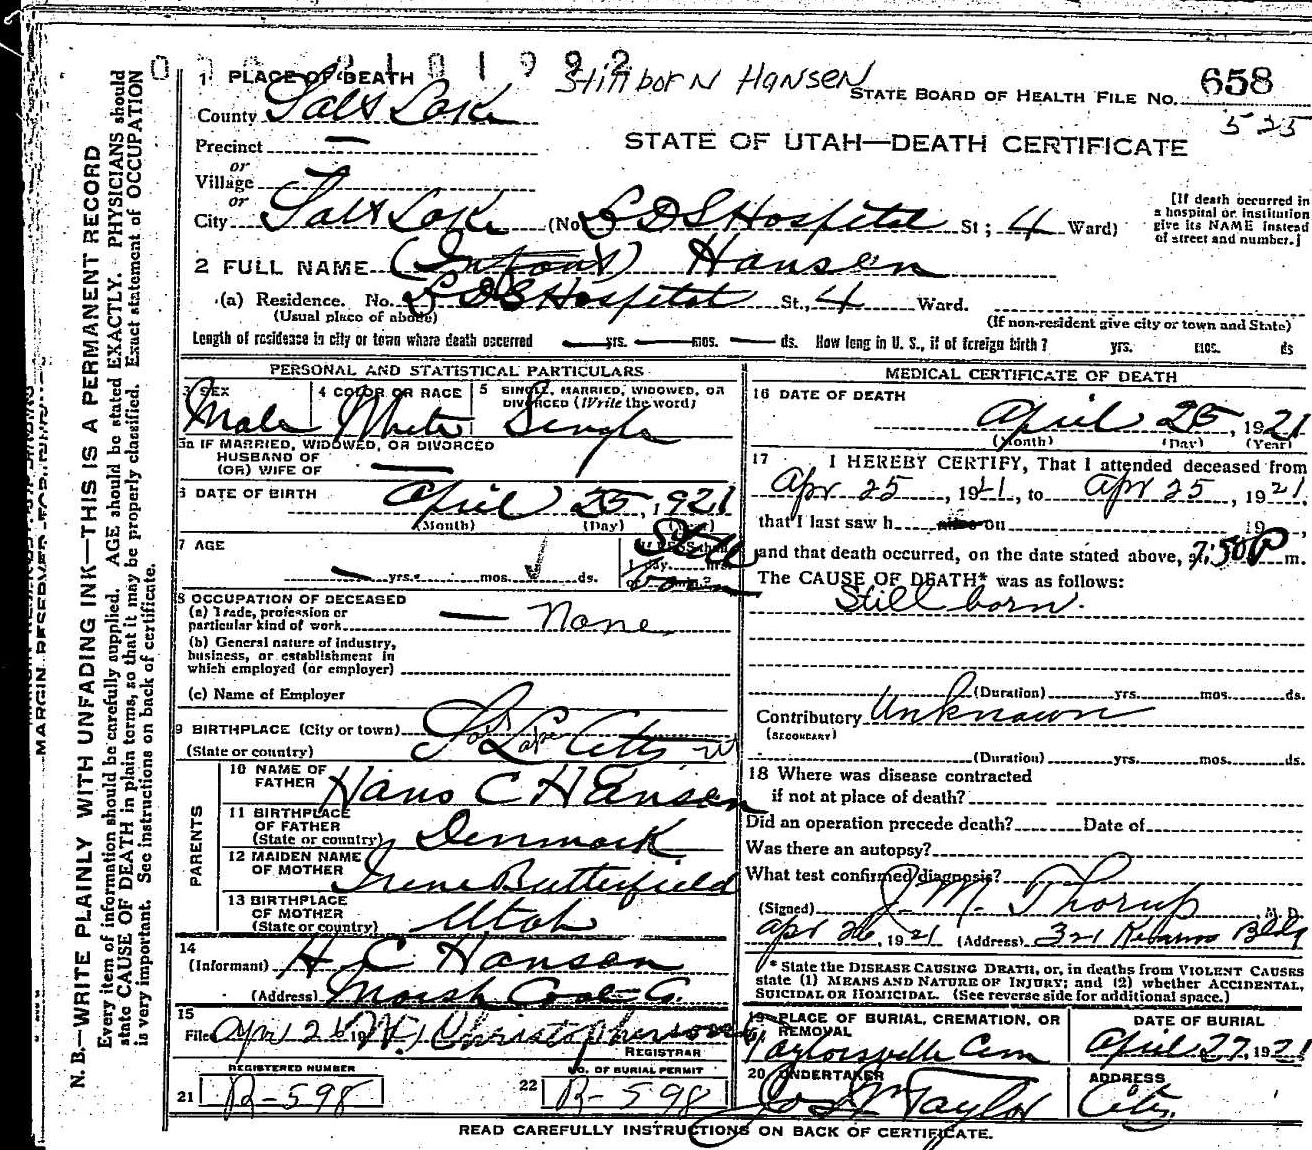 Stillborn Hansen
1 PLACE OF DEATH
STATE BOARD OF HEALTH FILE NO. 658
525
County Salt Lake
Precinct —
STATE OF UTAH—DEATH CERTIFICATE
or
Village
or
City Salt Lake (No. LDS Hospital St; 4 Ward)
[If death occurred in
a hospital or institution
give its NAME instead
of street and number.]
2 FULL NAME (Infant) Hansen
(a) Residence. No. LDS Hospital St., 4 Ward.
(Usual place of abode) (If non-resident give city or town and State)
Length of residence in city or town where death occurred — yrs. — mos. — ds. How long in U. S., if of foreign birth? yrs. mos. ds
PERSONAL AND STATISTICAL PARTICULARS
3 SEX 4 COLOR OR RACE 5 SINGLE, MARRIED, WIDOWED, OR
DIVORCED (Write the word)
Male White Single
5a IF MARRIED, WIDOWED, OR DIVORCED
HUSBAND OF
(OR) WIFE OF —
6 DATE OF BIRTH April 25, 1921
(Month) (Day) (Year)
7 AGE — yrs. mos. ds. Still born
8 OCCUPATION OF DECEASED
(a) Trade, profession or
particular kind of work — None
(b) General nature of industry,
business, or establishment in
which employed (or employer)
(c) Name of Employer
9 BIRTHPLACE (City or town) Salt Lake City
(State or country)
PARENTS
10 NAME OF
FATHER Hans C Hansen
11 BIRTHPLACE
OF FATHER
(State or country) Denmark
12 MAIDEN NAME
OF MOTHER Irene Butterfield
13 BIRTHPLACE
OF MOTHER
(State or country) Utah
14
(Informant) H C Hansen
(Address) Marsh Coal Co.
15
Filed Apr 26 19 Christopherson
REGISTRAR
REGISTERED NUMBER
21 R-598
NO. OF BURIAL PERMIT
22 R-598
MEDICAL CERTIFICATE OF DEATH
16 DATE OF DEATH
April 25, 1921
(Month) (Day) (Year)
17 I HEREBY CERTIFY, That I attended deceased from
Apr 25, 1921, to Apr 25, 1921.
that I last saw h alive on 19 ,
and that death occurred, on the date stated above, at 7:50 P m.
The CAUSE OF DEATH* was as follows:
Still born.
(Duration) yrs. mos. ds.
Contributory Unknown
(SECONDARY)
(Duration) yrs. mos. ds.
18 Where was disease contracted
if not at place of death?
Did an operation precede death? Date of
Was there an autopsy?
What test confirmed diagnosis?
(Signed) J. M. Thorup, M. D.
Apr 26, 1921 (Address) 321 Kearns Bldg
* State the DISEASE CAUSING DEATH, or, in deaths from VIOLENT CAUSES
state (1) MEANS AND NATURE OF INJURY; and (2) whether ACCIDENTAL,
SUICIDAL OR HOMICIDAL. (See reverse side for additional space.)
19 PLACE OF BURIAL, CREMATION, OR
REMOVAL
Taylorsville Cem
DATE OF BURIAL
April 27, 1921
20 UNDERTAKER
Jos Wm Taylor
ADDRESS
City.
READ CAREFULLY INSTRUCTIONS ON BACK OF CERTIFICATE.
MARGIN RESERVED FOR BINDING
N. B.—WRITE PLAINLY WITH UNFADING INK—THIS IS A PERMANENT RECORD
Every item of information should be carefully supplied. AGE should be stated EXACTLY. PHYSICIANS should
state CAUSE OF DEATH in plain terms, so that it may be properly classified. Exact statement of OCCUPATION
is very important. See instructions on back of certificate.